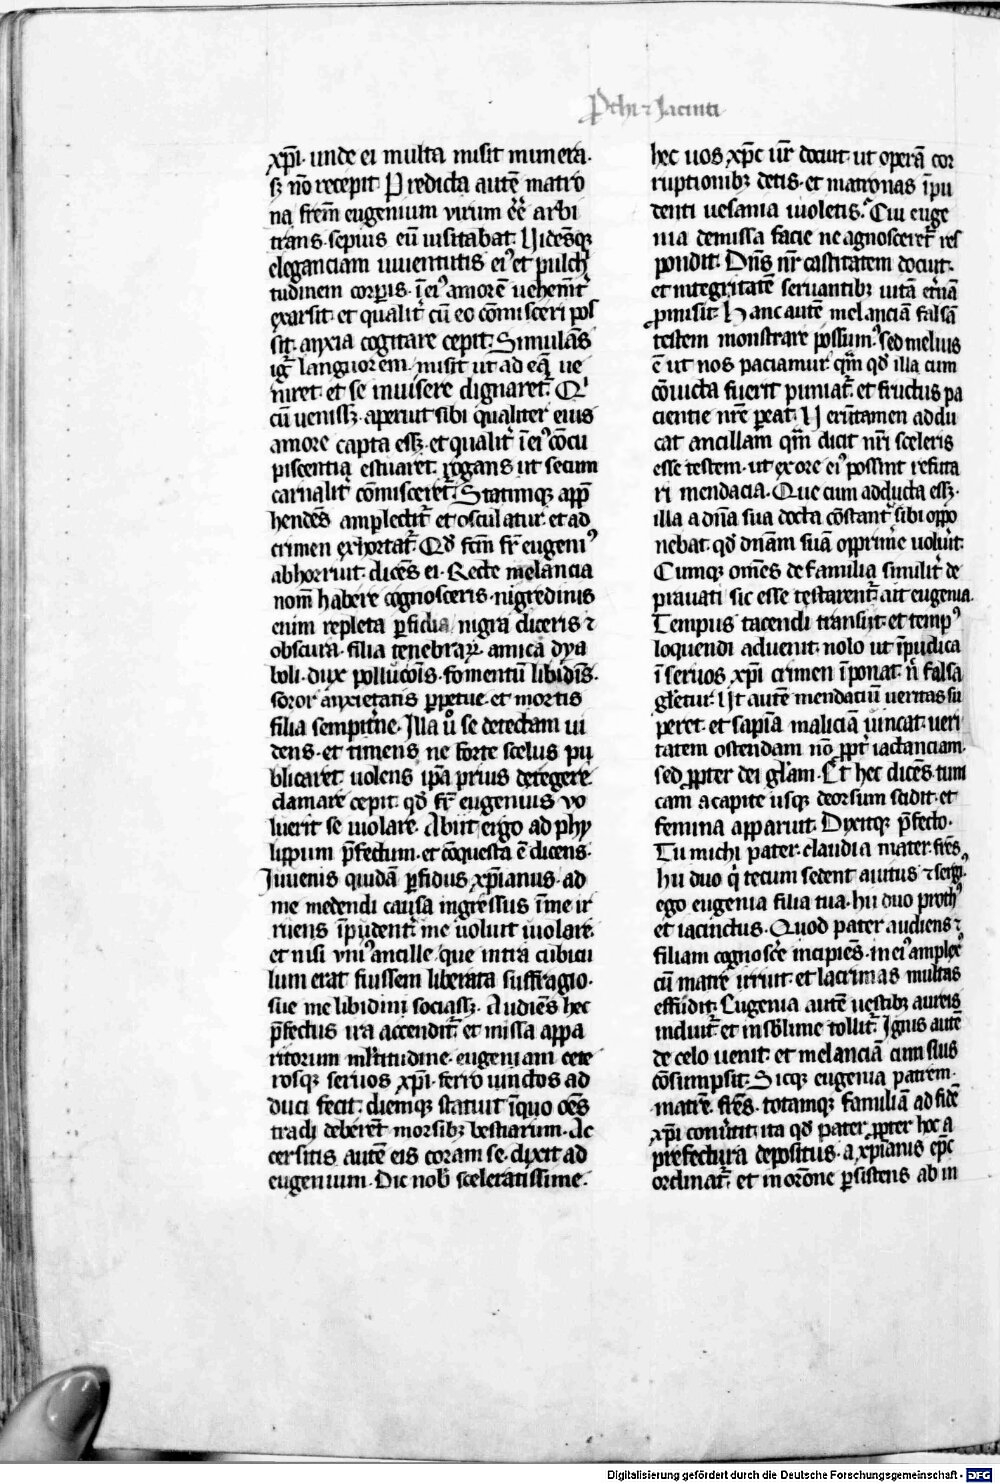 Pthi ⁊ Jacinti
xp̄i· unde ei multa misit munera·
sꝫ nō recepit· Predicta autē matro
na frem̄ eugenium uirum ēē arbi
trans· sepius eū uisitabat· Uidēsqꝫ
eleganciam iuuentutis eiꝰ et pulch
tudinem corꝑis· ī eiꝰ amorē uehemt̄
exarsit· et qualit̄ cū eo cōmisceri pos
sit· anxia cogitare cepit· Simulās
igr̄ languorem· misit ut ad eā ue
niret· et se inuisere dignaret̄· Q
cū uenissꝫ· aperuit sibi qualiter eius
amore capta essꝫ· et qualit̄ ī eiꝰ cōcu
piscentia estuaret· rogans ut secum
carnalit̄ cōmisceret̄· Statimqꝫ app̄
hendēs amplectit̄ et osculatur· et ad
crimen exhortat̄· Qd̄ fcm̄ fr̄ eugeniꝰ
abhorruit· dicēs ei· Recte melancia
nom̄ habere cognosceris· nigredinis
enim repleta ꝑfidia nigra diceris ⁊
obscura· filia tenebraꝝ· amica dya
boli· dux pollucōis· fomentū libidīs·
soror anxietatis ꝑpetue· et mortis
filia sempit̄ne· Illa ů se detectam ui
dens· et timens ne forte scelus pu
blicaret· uolens ip̄a prius detegere·
clamare cepit· qd̄ fr̄ eugenius uo
luerit se uiolare· Abiit ergo ad phy
lippum p̄fectum· et cōquesta ē dicens·
Iuuenis quidā ꝑfidus xp̄ianus· ad
me medendi causa ingressus īme ir
ruens īpudent̄ me uoluit uiolare·
et nisi uniꝰ ancille que intra cubicu
lum erat fuissem liberata suffragio·
sue me libidini sociassꝫ· Audiēs hec
p̄fectus ira accendit̄· et missa appa
ritorum mltitudine· eugeniam cete
rosqꝫ seruos xp̄i· ferro uinctos ad
duci fecit· diemqꝫ statuit īquo oēs
tradi deberēt morsibꝫ bestiarum· Ac
cersitis autē eis coram se· dixit ad
eugenium· Dic nob̄ sceleratissime·
hec uos xp̄c ur̄ docuit· ut operā cor
ruptionibꝫ detis· et matronas īpu
denti uesania uioletis· Cui euge
nia demissa facie ne agnosceret̄ res
pondit· Dn̄s nr̄ castitatem docuit·
et integritatē seruantibꝫ uitā et̄nā
ꝓmisit· Hanc autē melanciā falsā
testem monstrare possum· sed melius
ē ut nos paciamur· qm̄ qd̄ illa cum
cōuicta fuerit puniat̄· et fructus pa
cientie nr̄e ꝑeat· Ueru̅tamen addu
cat ancillam qm̄ dicit nr̄i sceleris
esse testem· ut ex ore eiꝰ possint refuta
ri mendacia· Que cum adducta essꝫ·
illa a dn̄a sua docta cōstant̄ sibi oppo
nebat· qd̄ dnam suā opprime uolūit·
Cumqꝫ omēs de familia similit̄ de
prauati sic esse testarent̄· ait eugenia·
Tempus tacendi transiit· et tempꝰ
loquendi aduenit· nolo ut īpudica
ī seruos xp̄i crimen īponat· n̄ falsa
glietur· Ut autē mendatiū ueritas su
peret· et sapīa maliciā uincat· ueri
tatem ostendam nō ꝓpt̄ iactanciam·
sed ꝓpter dei glam̄· Et hec dicēs tuni
cam a capite usqꝫ deorsum scidit· et
femina apparuit· Dixitqꝫ p̄fecto·
Tu michi pater· claudia mater· frēs
hii duo q̄ tecum sedent auitus ⁊ sergꝰ·
ego eugenia filia tua· hii duo prothꝰ
et iacinctus· Quod pater audiens ⁊
filiam cognoscē incipiēs· in eiꝰ amplexꝰ
cū matre irruit· et lacrimas multas
effudit· Eugenia autē uestibꝫ aureis
induit̄· et in sublime tollit̄· Ignis autē
de celo uenit· et melanciā cum suis
cōsumpsit· Sicqꝫ eugenia patrem·
matrē· frēs· totamqꝫ familiā ad fidē
xp̄i conu̅tit· ita qd̄ pater ꝓpter hoc a
prefectura depositus· a xp̄ianis ep̄c
ordinat̄· et in orōne ꝑsistens ab in
Digitalisierung gefördert durch die Deutsche Forschungsgemeinschaft · DFG